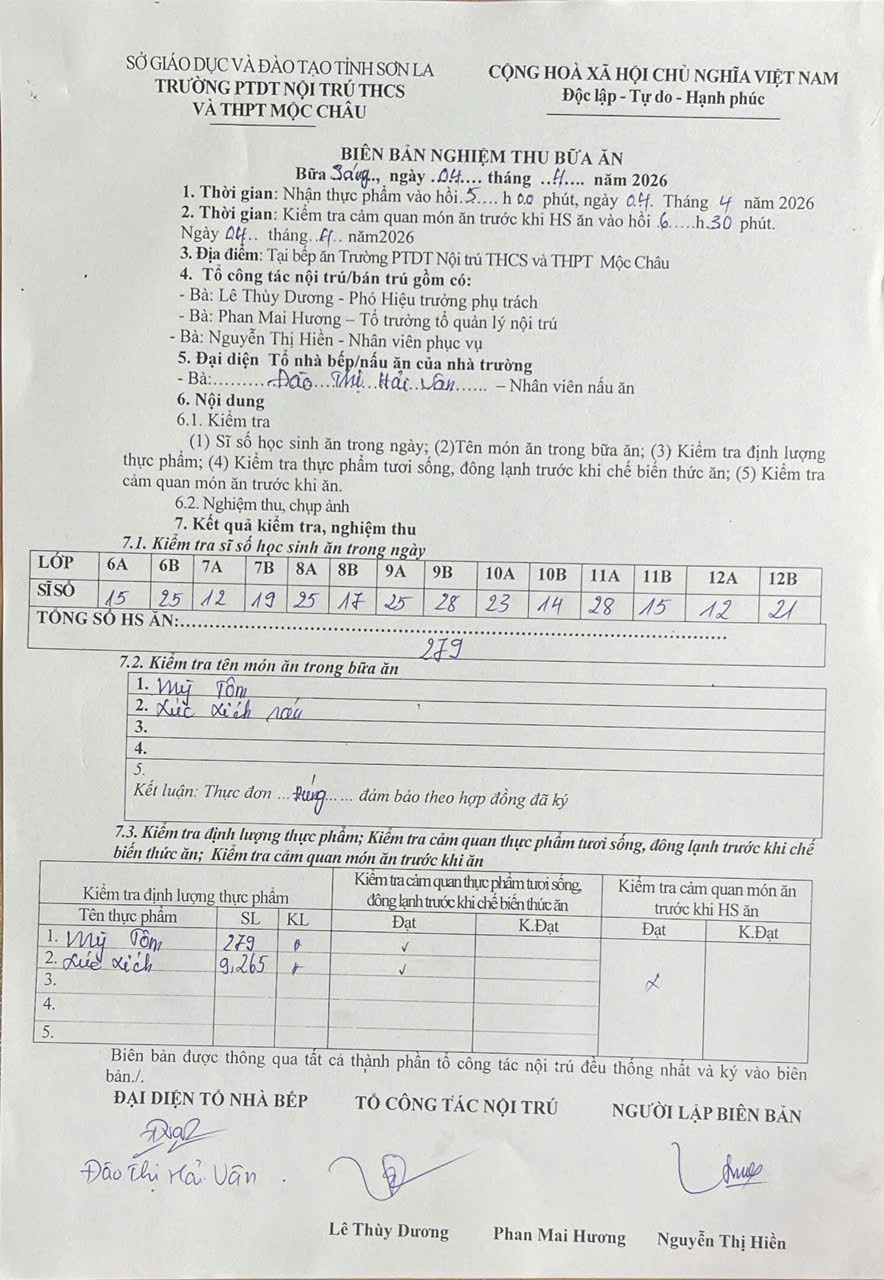 SỞ GIÁO DỤC VÀ ĐÀO TẠO TỈNH SƠN LA
TRƯỜNG PTDT NỘI TRÚ THCS
VÀ THPT MỘC CHÂU
CỘNG HOÀ XÃ HỘI CHỦ NGHĨA VIỆT NAM
Độc lập - Tự do - Hạnh phúc
BIÊN BẢN NGHIỆM THU BỮA ĂN
Bữa Sáng., ngày .04.... tháng ..4.... năm 2026
1. Thời gian: Nhận thực phẩm vào hồi.5.... h 00 phút, ngày 04. Tháng 4 năm 2026
2. Thời gian: Kiểm tra cảm quan món ăn trước khi HS ăn vào hồi .6.....h.30 phút.
Ngày 04.. tháng..4.. năm2026
3. Địa điểm: Tại bếp ăn Trường PTDT Nội trú THCS và THPT Mộc Châu
4. Tổ công tác nội trú/bán trú gồm có:
- Bà: Lê Thùy Dương - Phó Hiệu trưởng phụ trách
- Bà: Phan Mai Hương – Tổ trưởng tổ quản lý nội trú
- Bà: Nguyễn Thị Hiền - Nhân viên phục vụ
5. Đại diện Tổ nhà bếp/nấu ăn của nhà trường
- Bà:.........Đào...Thị...Hải..Vân...... – Nhân viên nấu ăn
6. Nội dung
6.1. Kiểm tra
(1) Sĩ số học sinh ăn trong ngày; (2)Tên món ăn trong bữa ăn; (3) Kiểm tra định lượng
thực phẩm; (4) Kiểm tra thực phẩm tươi sống, đông lạnh trước khi chế biến thức ăn; (5) Kiểm tra
cảm quan món ăn trước khi ăn.
6.2. Nghiệm thu, chụp ảnh
7. Kết quả kiểm tra, nghiệm thu
7.1. Kiểm tra sĩ số học sinh ăn trong ngày
LỚP 6A 6B 7A 7B 8A 8B 9A 9B 10A 10B 11A 11B 12A 12B
SĨ SỐ 15 25 12 19 25 17 25 28 23 14 28 15 12 21
TỔNG SỐ HS ĂN:..........
279
7.2. Kiểm tra tên món ăn trong bữa ăn
1. Mỹ Tôm
2. Xúc Xích
3.
4.
5.
Kết luận: Thực đơn ...Đúng...... đảm bảo theo hợp đồng đã ký
7.3. Kiểm tra định lượng thực phẩm; Kiểm tra cảm quan thực phẩm tươi sống, đông lạnh trước khi chế
biến thức ăn; Kiểm tra cảm quan món ăn trước khi ăn
Kiểm tra định lượng thực phẩm
Kiểm tra cảm quan thực phẩm tươi sống,
đông lạnh trước khi chế biến thức ăn
Kiểm tra cảm quan món ăn
trước khi HS ăn
Tên thực phẩm SL KL Đạt K.Đạt Đạt K.Đạt
1. Mỹ Tôm 279 ✓
2. Xúc Xích 9,265 ✓
3.
4.
5.
Biên bản được thông qua tất cả thành phần tổ công tác nội trú đều thống nhất và ký vào biên
bản./.
ĐẠI DIỆN TỔ NHÀ BẾP TỔ CÔNG TÁC NỘI TRÚ NGƯỜI LẬP BIÊN BẢN
Đào Thị Hải Vân
Lê Thùy Dương Phan Mai Hương Nguyễn Thị Hiền